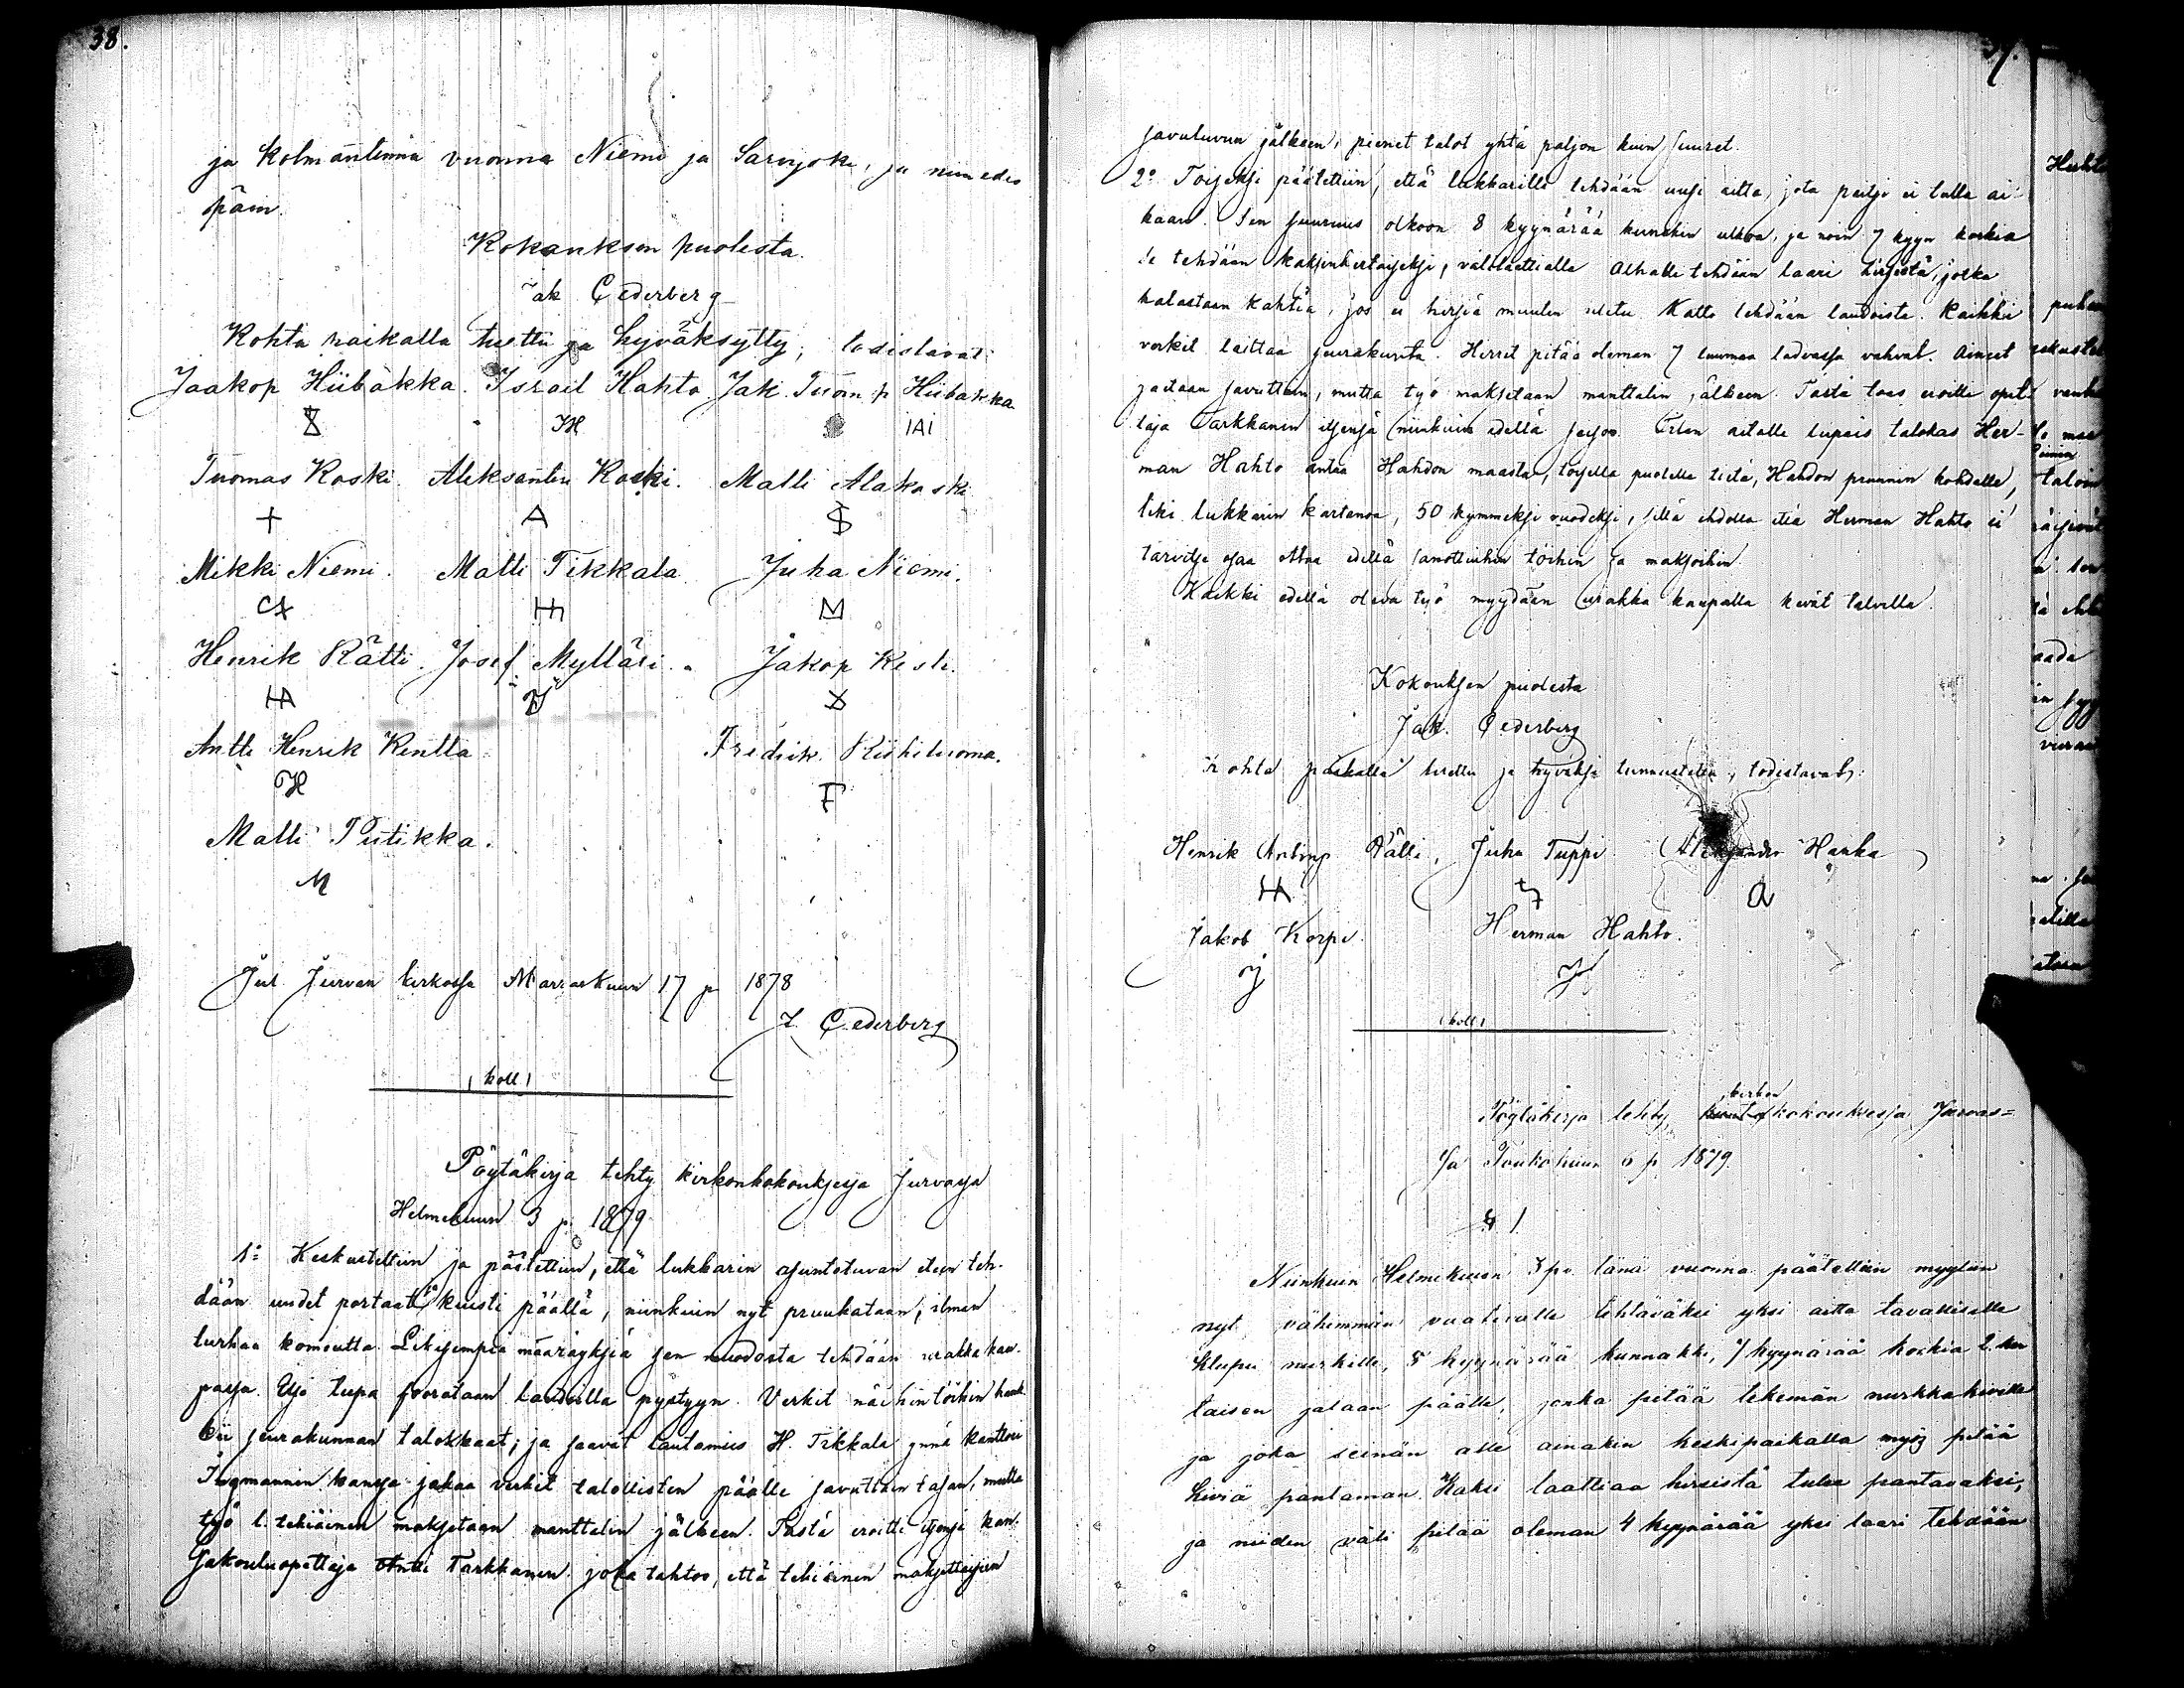 38.
ja kolmantenna vuonna Niemi ja Sarvijoki, ja niin edes
päin.
Kokouksen puolesta.
Jak Cederberg
Kohta paikalla luettu ja hyväksytty, todistavat:
Jaakop Hiibakka. Israel Hahto Jak. Tuom. p Hiibakka
IH IAI
Tuomas Koski. Aleksanteri Koski. Matti Alakoski
+ A
Mikki Niemi. Matti Tikkala Juha Niemi.
M
Henrik Rätti. Josef Mylläri. Jakop Kesti.
HA
Antti Henrik Rentta Fredrik Riihiluoma.
H F
Matti Piitikka.
M
Jul. Jurvan kirkossa Marraskuun 17 p 1878
J. Cederberg
(koll)
Pöytäkirja tehty kirkonkokouksessa Jurvassa
Helmikuun 3 p. 1879
1o Keskusteltiin ja päätettiin, että lukkarin asuntotuvan eteen teh-
dään uudet portaat kuisti päällä, niinkuin nyt pruukataan, ilman
turhaa komeutta. Likisempiä määräyksiä sen muodosta tehdään urakka kau-
passa. Itse tupa foorataan laudoilla pystyyn. Verkit näihin töihin hank-
kii seurakunnan talokkaat; ja saavat lautamies H. Tikkala ynnä kanttori
Ingmannin kanssa jakaa verkit talollisten päälle savuttain tasan, mutta
työ l. tekiäinen maksetaan manttalin jälkeen. Tästä eroitti itsensä kan-
sakouluopettaja Antti Tarkkanen joka tahtoo, että tekiäinen maksettaisiin
savuluvun jälkeen, pienet talot yhtä paljon kuin suuret.
2o Toiseksi päätettiin, että lukkarille tehdään uusi aitta, jota paitsi ei tulla ai-
kaan. Sen suuruus olkoon 8 kyynärää kunnekin ulkoa, ja noin 7 kyyn korkia
se tehdään kaksinkertaiseksi, välilaattialla Alhalle tehdään laari hirsistä, jotka
halastaan kahtia, jos ei hirsiä muuten Katto tehdään laudoista. Kaikki
verkit laittaa seurakunta. Hirret pitää oleman 7 tuumaa ladvassa vahvat. Aineet
jaetaan savuttain, mutta työ maksetaan manttalin jälkeen. Tästä taas eroitti opet-
taja Tarkkanen itsensä niinkuin edellä seisoo. Tilan aitalle lupais talokas Her-
man Hahto antaa Hahdon maasta, toisella puolella tietä, Hahdon prunnin kohdalla,
liki lukkarin kartanoa, 50 kymmeksi vuodeksi, sillä ehdolla että Herman Hahto ei
tarvitse osaa ottaa edellä sanottuihin töihin ja maksoihin.
Kaikki edellä oleva työ myydään urakka kaupalla kevät talvella.
Kokouksen puolesta
Jak. Cederberg
Kohta paikalla luettu ja hyväksi tunnustettu, todistavat:
Henrik Antinp Rätti, Juha Tuppi Aleksander Hanka
HA
Jakob Korpi. Herman Hahto.
(koll)
Pöytäkirja tehty kirkon kokouksessa Jurvas=
sa Toukokuun 6 p 1879.
§ 1
Niinkuin Helmikuun 3 p. tänä vuonna päätettiin myytiin
nyt vähimmin vaativalle tehtäväksi yksi aitta tavallisella
klupu nurkille, 8 kyynärää kunnakki, 7 kyynärää korkia 2. ker
taisen jalaan päälle, jonka pitää tekemän nurkkakiville
ja joka seinän alle ainakin keskipaikalla myös pitää
kiviä pantaman. Kaksi laattiaa hirsistä tulee pantavaksi,
ja niiden väli pitää oleman 4 kyynärää yksi laari tehdään